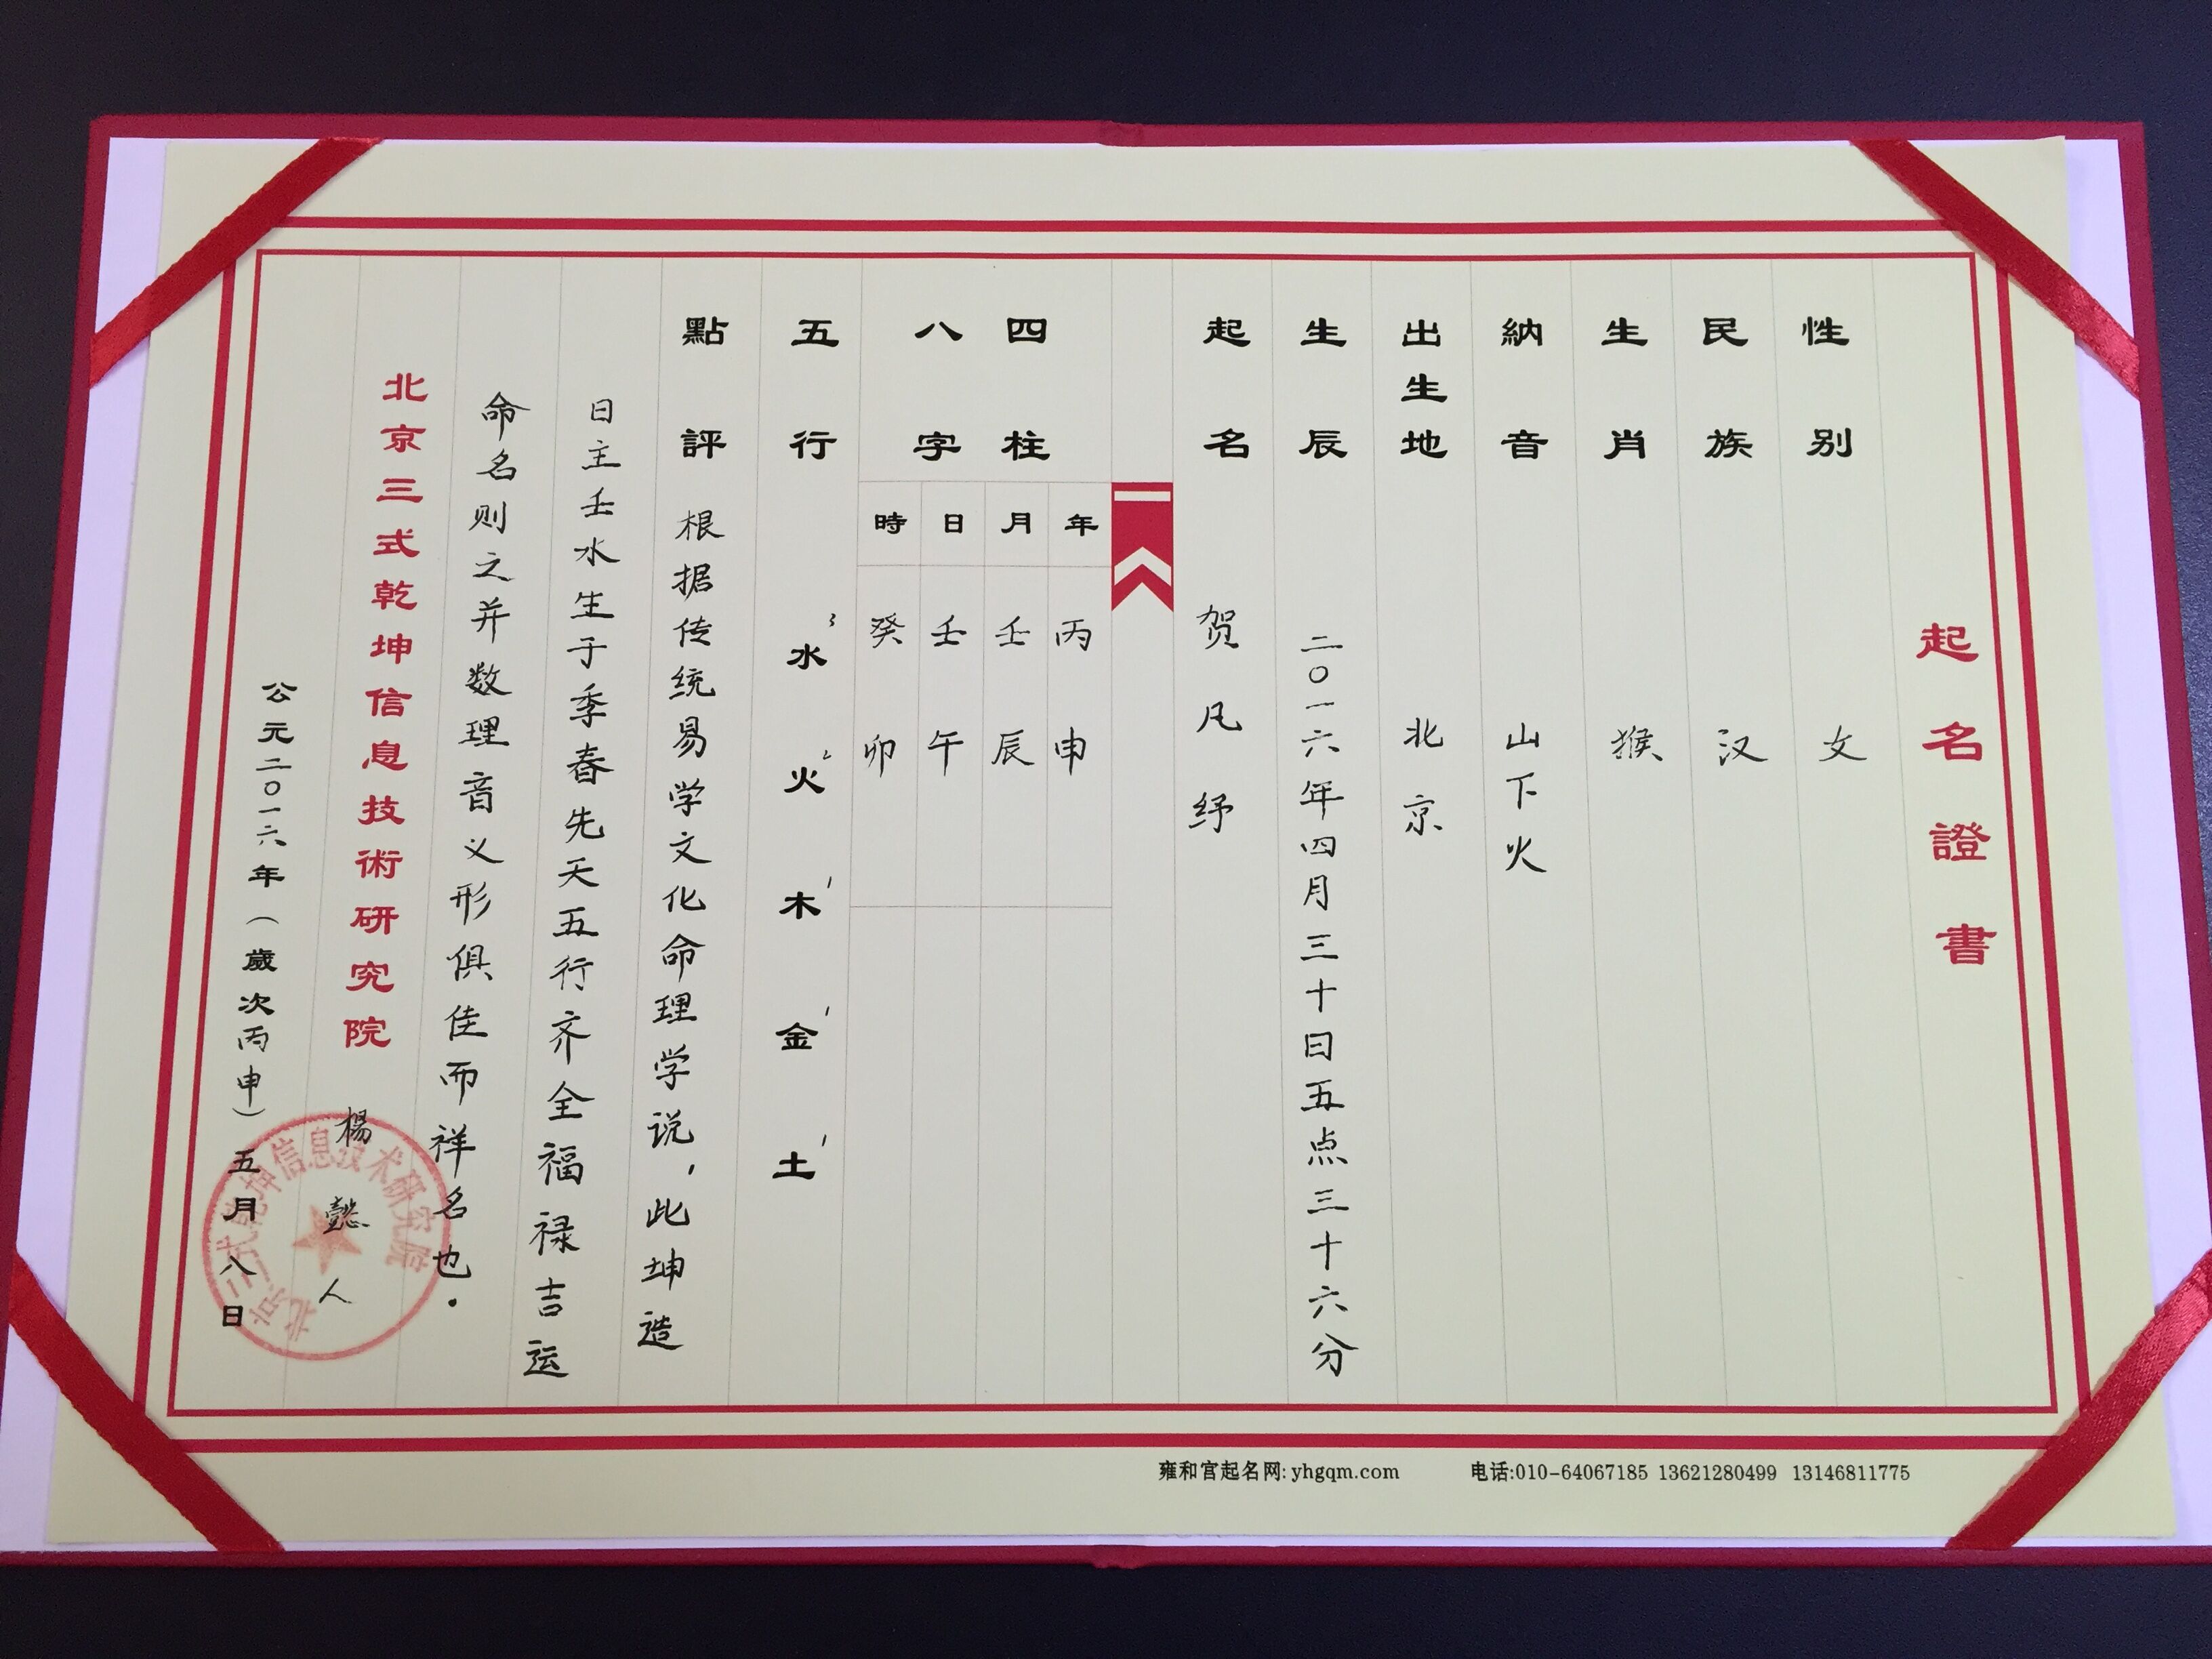 起名證書
性别 女
民族 汉
生肖 猴
納音 山下火
出生地 北京
生辰 二〇一六年四月三十日五点三十六分
起名 贺凡纾
四柱
八字
年 丙申
月 壬辰
日 壬午
時 癸卯
五行 水3 火2 木1 金1 土1
點評 根据传统易学文化命理学说,此坤造
日主壬水生于季春先天五行齐全福禄吉运
命名则之并数理音义形俱佳而祥名也.
北京三式乾坤信息技術研究院 楊懿人
公元二〇一六年(歲次丙申)五月八日
北京三式乾坤信息技术研究院
雍和宫起名网:yhgqm.com 电话:010-64067185 13621280499 13146811775